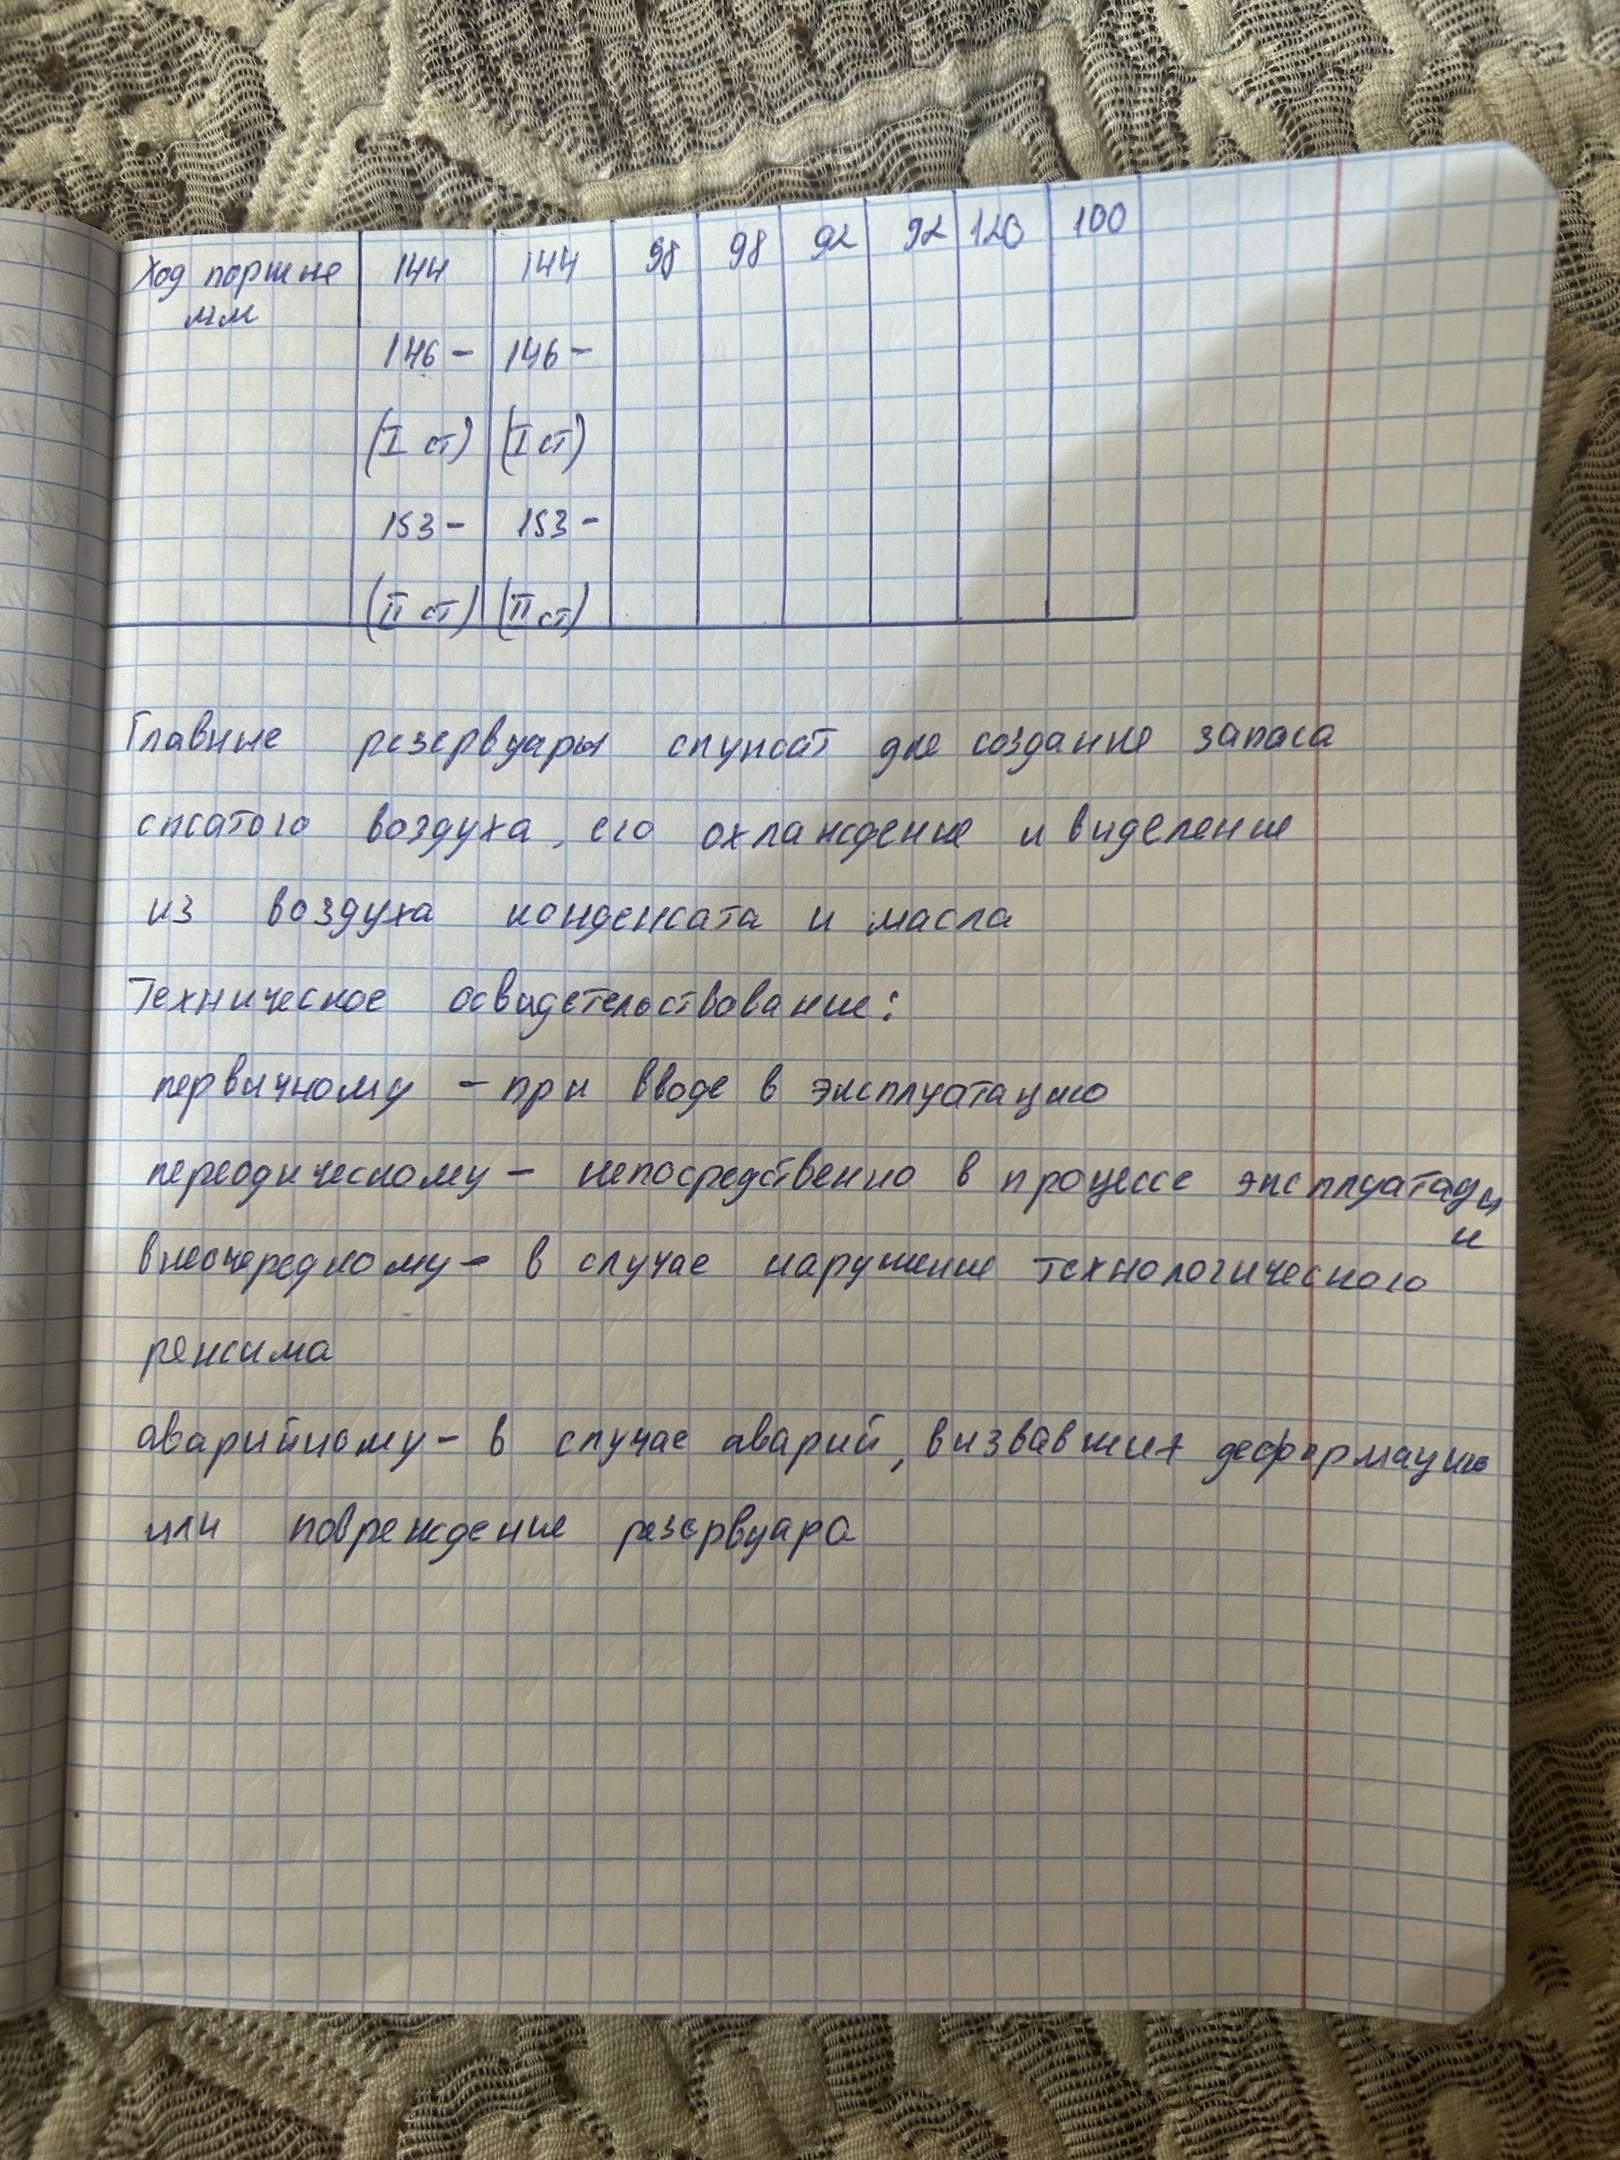 Ход поршне 144 144 98 98 92 92 120 100
мм
146 - 146 -
(I ст) (I ст)
153 - 153 -
(II ст) (II ст)
Главние резервуары служат дле создание запаса
сжатого воздуха, его охлаждение и виделение
из воздуха конденсата и масла
Техническое освидетельствование:
первичному - при вводе в эксплуатацию
переодическому - непосредственно в процессе эксплуатаци
и
внеочередному - в случае наружение технологического
режима
аварийному - в случае аварий, визвавших деформацию
или повреждение резервуара